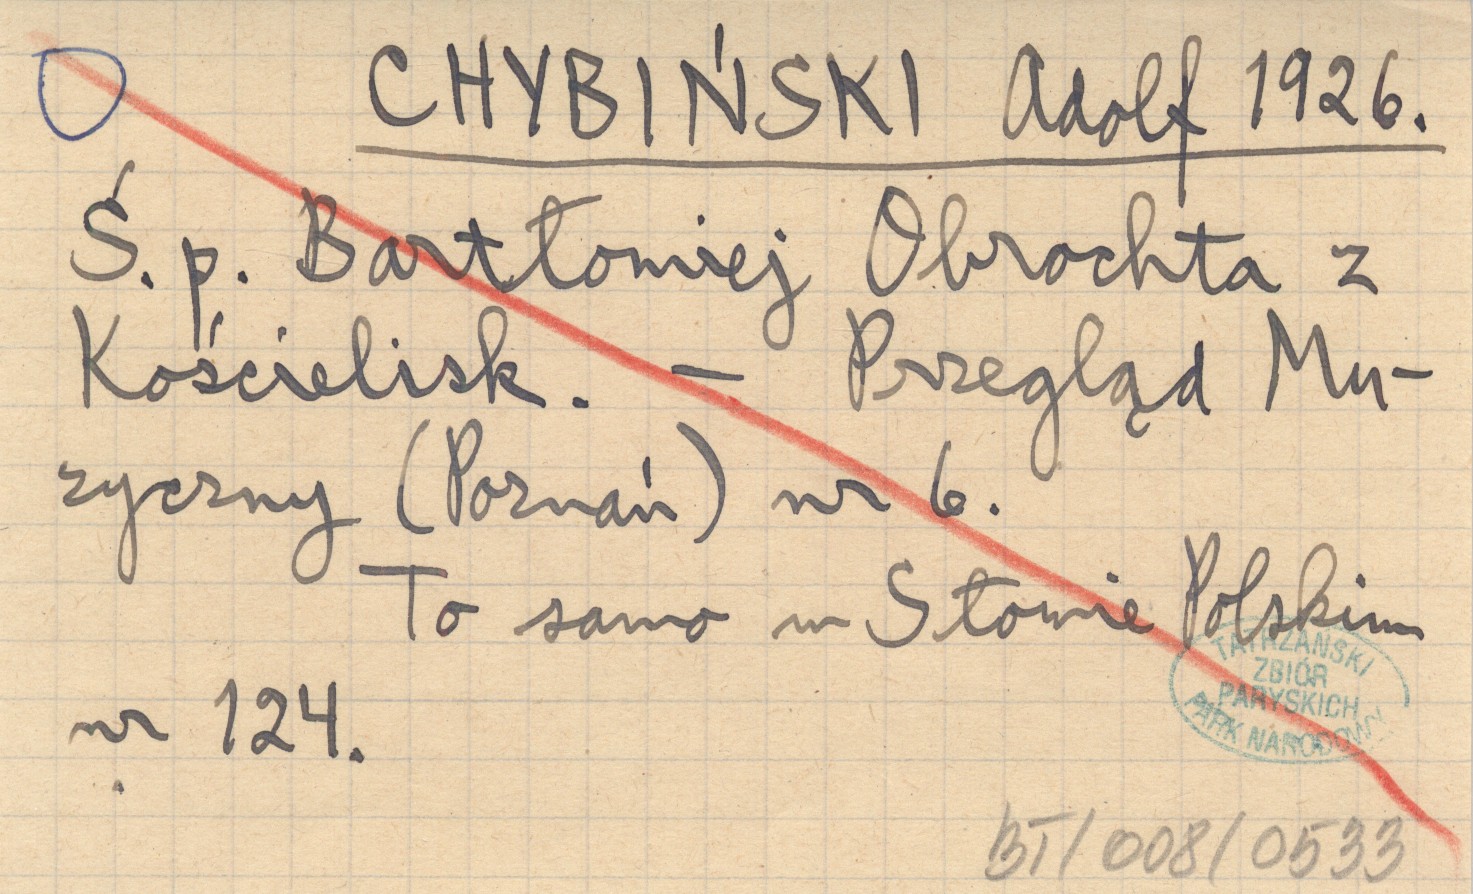 CHYBIŃSKI Adolf 1926.
Ś.p. Bartłomiej Obrochta z
Kościelisk. — Przegląd Mu-
zyczny (Poznań) nr 6.
To samo w Słowie Polskim
nr 124.
TATRZAŃSKI
ZBIÓR
PARYSKICH
PARK NARODOWY
BT/008/0533